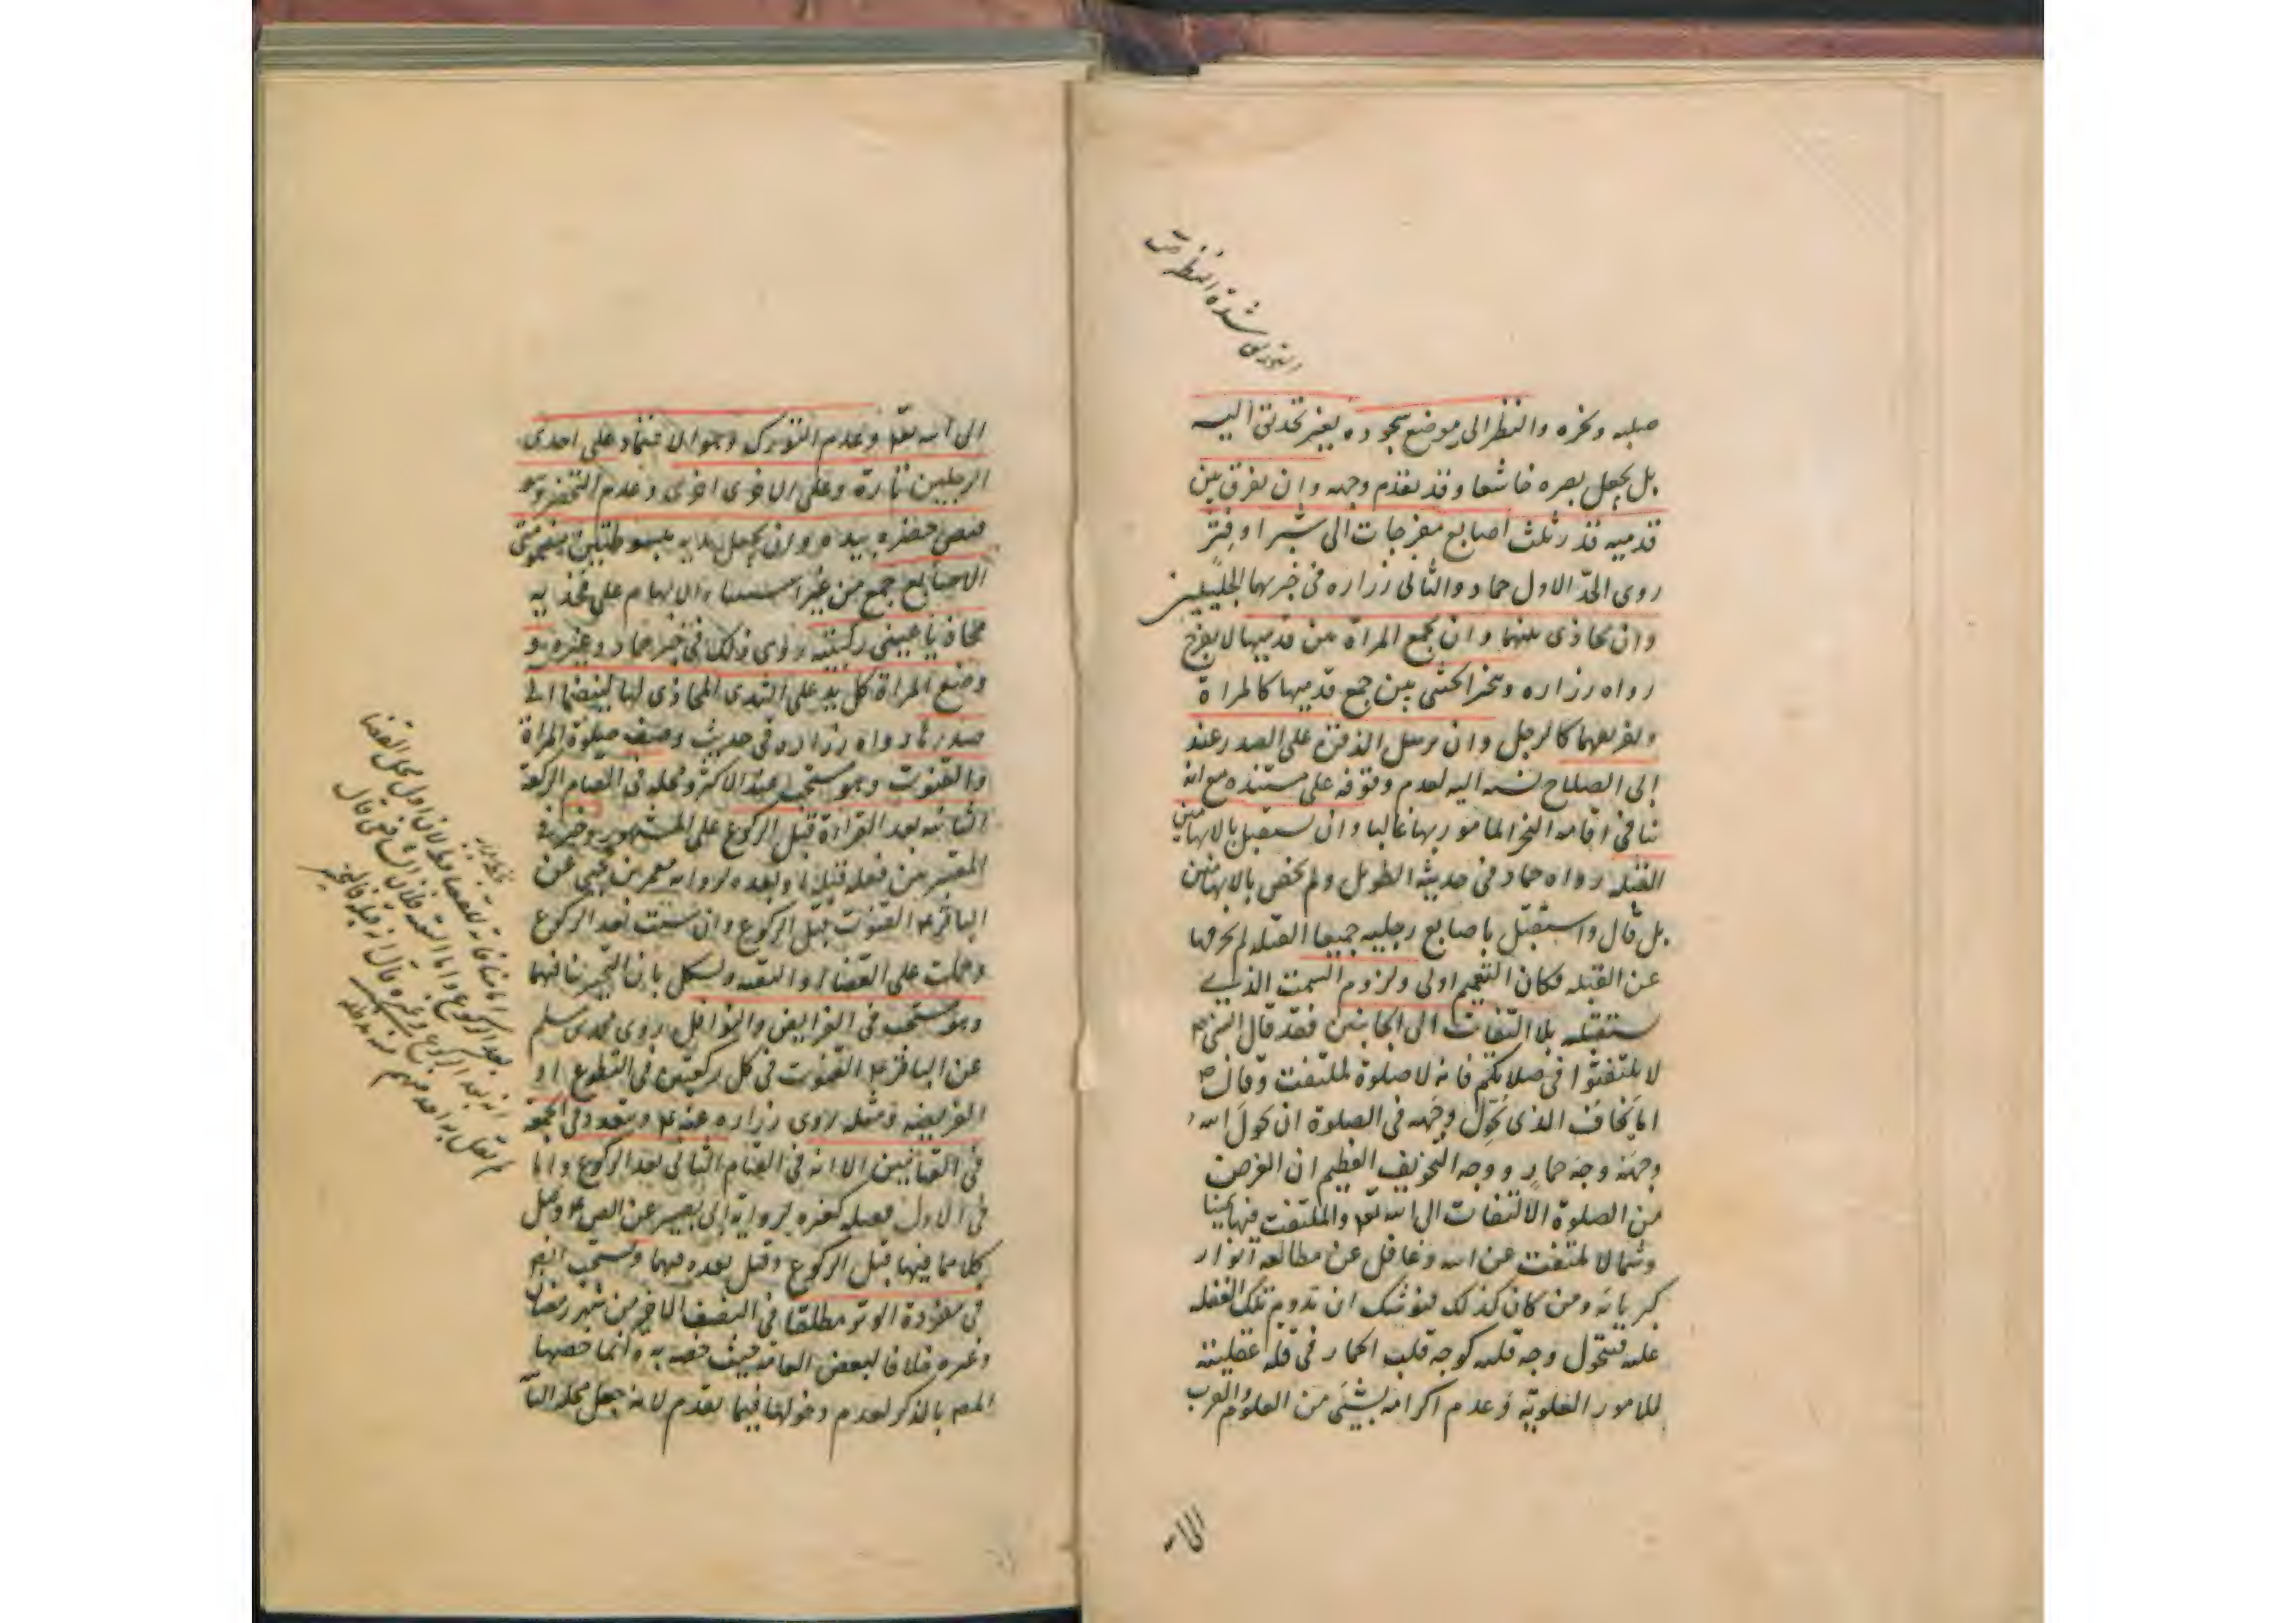 التحديق شدة النظر ص
صلبه ونحره والنظر الى موضع سجوده بغير تحديق اليه
بل يجعل بصره خاشعا وقد تقدم وجهه وان يفرق بين
قدميه قدر ثلث اصابع مفرجات الى شبر او فتر
روى الحدّ الاول حماد والثانى زراره فى خبريهما الجليلين
وان يحاذى بينهما وان تجمع المراة بين قدميها لا تفرج
رواه زراره ويتخير الخنثى بين جمع قدميها كالمراة
وتفريقهما كالرجل وان يرسل الذقن على الصدر عند
ابى الصلاح نسبه اليه لعدم وقوفه على مستنده مع انه
ينافى اقامة النحر المامور بها غالبا وان يستقبل بالابهامين
القبلة رواه حماد فى حديثه الطويل ولم يخص بالابهامين
بل قال واستقبل باصابع رجليه جميعا القبله لم يحرفها
عن القبله فكان التعميم اولى ولزوم السمت الذى
يستقبله بلا التفات الى الجانبين فقد قال النبى ص
لا تلتفتوا فى صلاتكم فانه لا صلوة لملتفت وقال ص
اما يخاف الذى يحوّل وجهه فى الصلوة ان يحول الله
وجهه وجه حمار ووجه التخويف العظيم ان الغرض
من الصلوة الالتفات الى الله تعالى والملتفت فيها يمينا
وشمالا ملتفت عن الله وغافل عن مطالعة انوار
كبريائه ومن كان كذلك فيوشك ان تدوم تلك الغفله
عليه فيتحول وجه قلبه كوجه قلب الحمار فى قلة عقليته
للامور العلوية وعدم اكرامه بشىء من العلوم والقرب
الى الله
الى الله تعالى وعدم التورك وهو الاعتماد على احدى
الرجلين تارة وعلى الاخرى اخرى وعدم التخصر وهو
قبض خصره بيده وان يجعل يديه مبسوطتين مضمومتى
الاصابع جمع من غير استثناء الابهام على فخذيه
محاذيا عينى ركبتيه روى ذلك فى خبر حماد وغيره و
وضع المراة كل يد على الثدى المحاذى لها لينضما الى
صدرها رواه زراره فى حديث وصف صلوة المراة
والقنوت وهو مستحب عند الاكثر ومحله فى القيام الركعة
الثانيه بعد القراءة قبل الركوع على المشهور وخير فى
المعتبر بين فعله قبله وبعده لرواية معمر بن يحيى عن
الباقر ع القنوت قبل الركوع وان شئت بعد الركوع
وحملت على القضاء او التقيه ويشكل بان التخيير ينافيهما
وهو مستحب فى الفرايض والنوافل روى محمد بن مسلم
عن الباقر ع القنوت فى كل ركعتين فى التطوع او
الفريضه ومثله روى زراره عنه ع ويتعدد فى الجمعة
فى القيامين الا انه فى القيام الثانى بعد الركوع واما
فى الاول فقبله كغيره لرواية ابى بصير عن الص ع وقيل
كلاهما فيها قبل الركوع وقيل بعده فيهما ويستحب ايضا
فى مفردة الوتر مطلقا فى النصف الاخير من شهر رمضان
وغيره خلافا لبعض العامه حيث خصه به وانما خصها
المص بالذكر لعدم دخولها فيما تقدم لانه جعل محله الثا